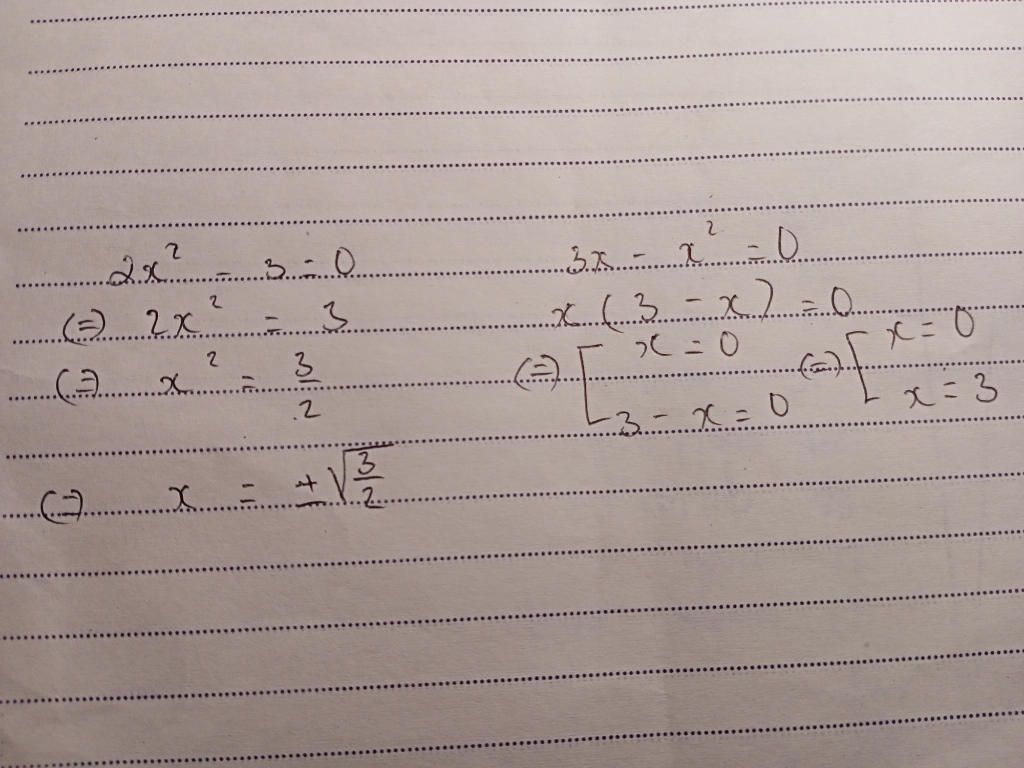 2x² - 3 = 0
(=) 2x² = 3
(=) x² = 3/2
(=) x = ±√(3/2)
3x - x² = 0
x(3 - x) = 0
(=) [ x = 0 (=) [ x = 0
3 - x = 0 x = 3